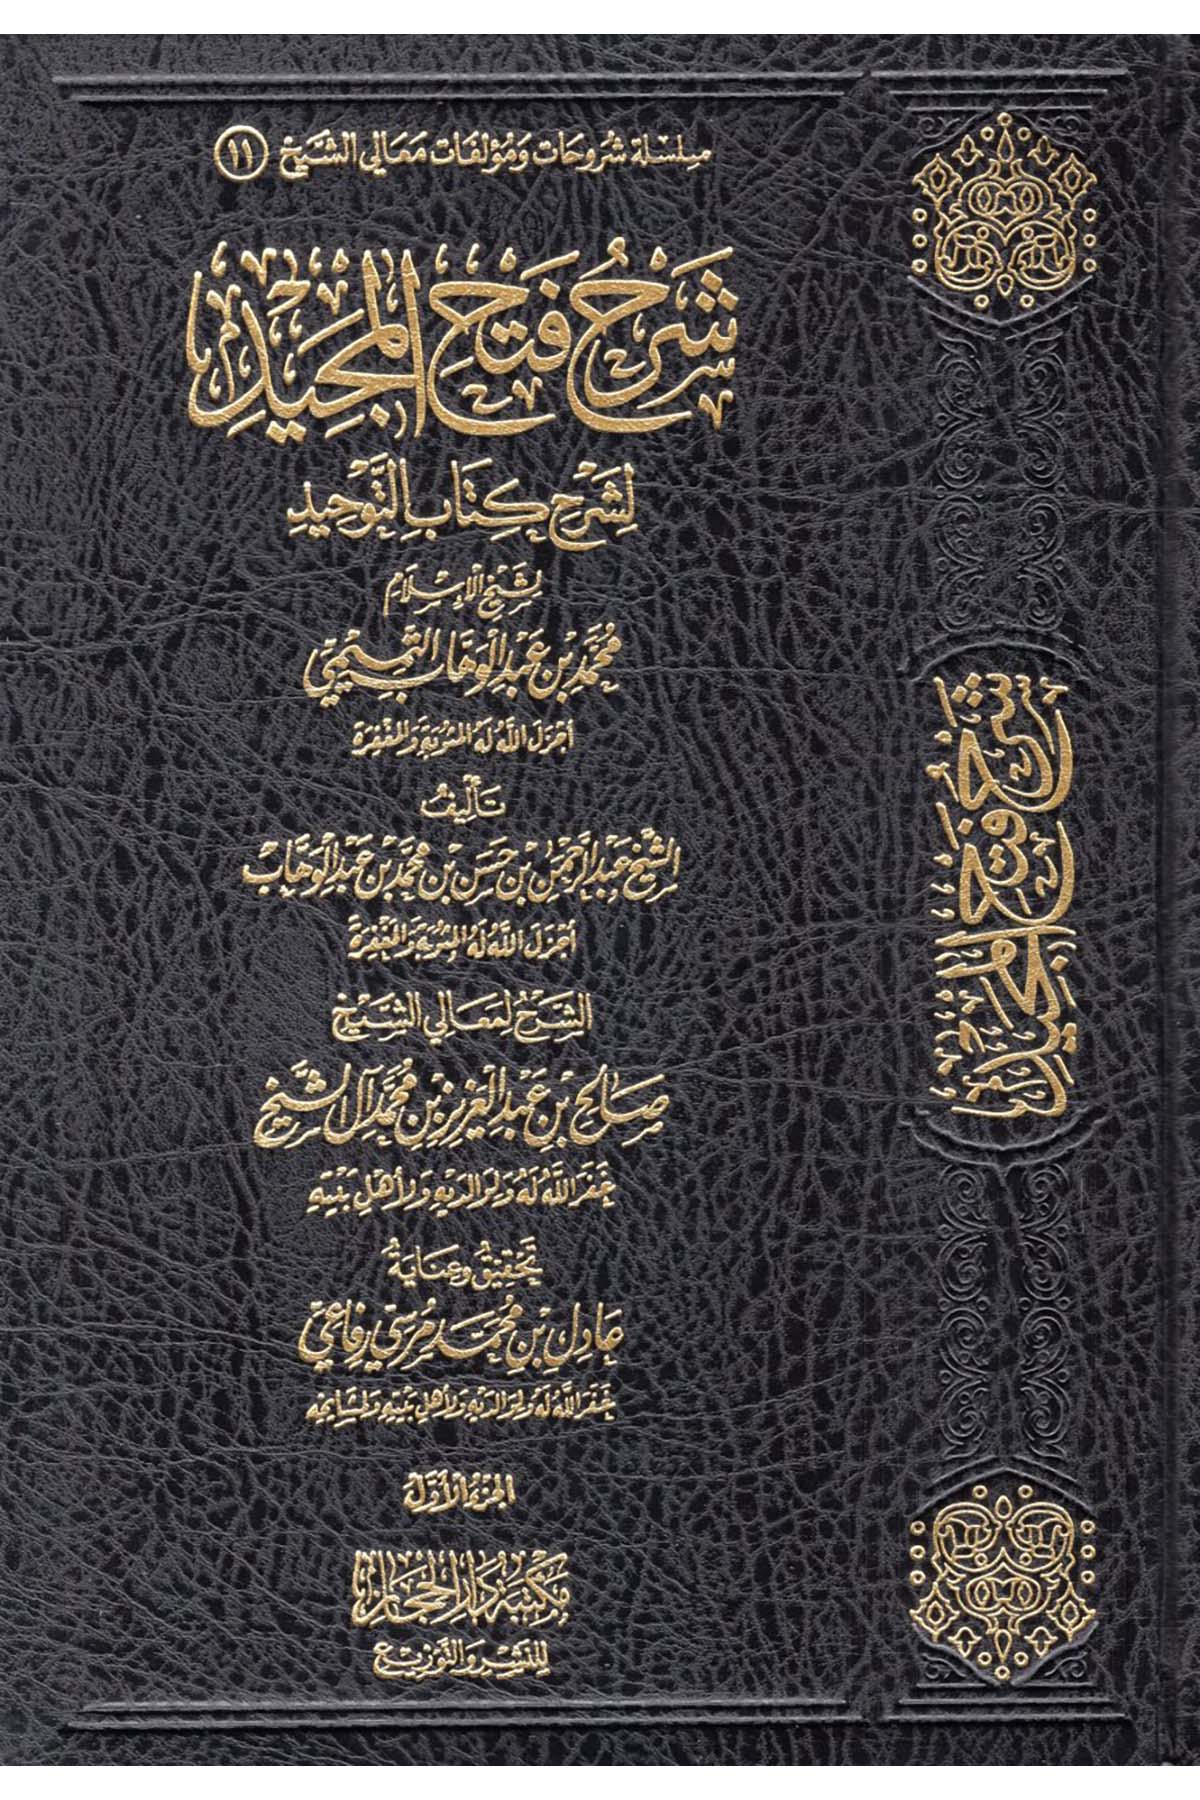 سلسلة شروحات ومؤلفات معالي الشيخ ١١
شَرْحُ فَتْحِ الْمَجِيْدِ
لِشَرْحِ كِتَابِ التَّوْحِيدِ
لِشَيْخِ الْإِسْلَامِ
مُحَمَّدِ بْنِ عَبْدِ الْوَهَّابِ التَّمِيمِيِّ
أَجْزَلَ اللَّهُ لَهُ الْمَثُوبَةَ وَالْمَغْفِرَةَ
تَأْلِيفُ
الشَّيْخِ عَبْدِ الرَّحْمَنِ بْنِ حَسَنِ بْنِ مُحَمَّدِ بْنِ عَبْدِ الْوَهَّابِ
أَجْزَلَ اللَّهُ لَهُ الْمَثُوبَةَ وَالْمَغْفِرَةَ
الشَّرْحُ لِمَعَالِي الشَّيْخِ
صَالِحِ بْنِ عَبْدِ الْعَزِيزِ بْنِ مُحَمَّدٍ آلِ الشَّيْخِ
غَفَرَ اللَّهُ لَهُ وَلِوَالِدَيْهِ وَلِأَهْلِ بَيْتِهِ
تَحْقِيقُ وَعِنَايَةُ
عَادِلِ بْنِ مُحَمَّد مُرْسِي رِفَاعِي
غَفَرَ اللَّهُ لَهُ وَلِوَالِدَيْهِ وَلِأَهْلِ بَيْتِهِ وَلِمَشَايِخِهِ
الْجُزْءُ الْأَوَّلُ
مَكْتَبَةُ دَارِ الْحِجَازِ
لِلنَّشْرِ وَالتَّوْزِيعِ
شَرْحُ فَتْحِ الْمَجِيْدِ